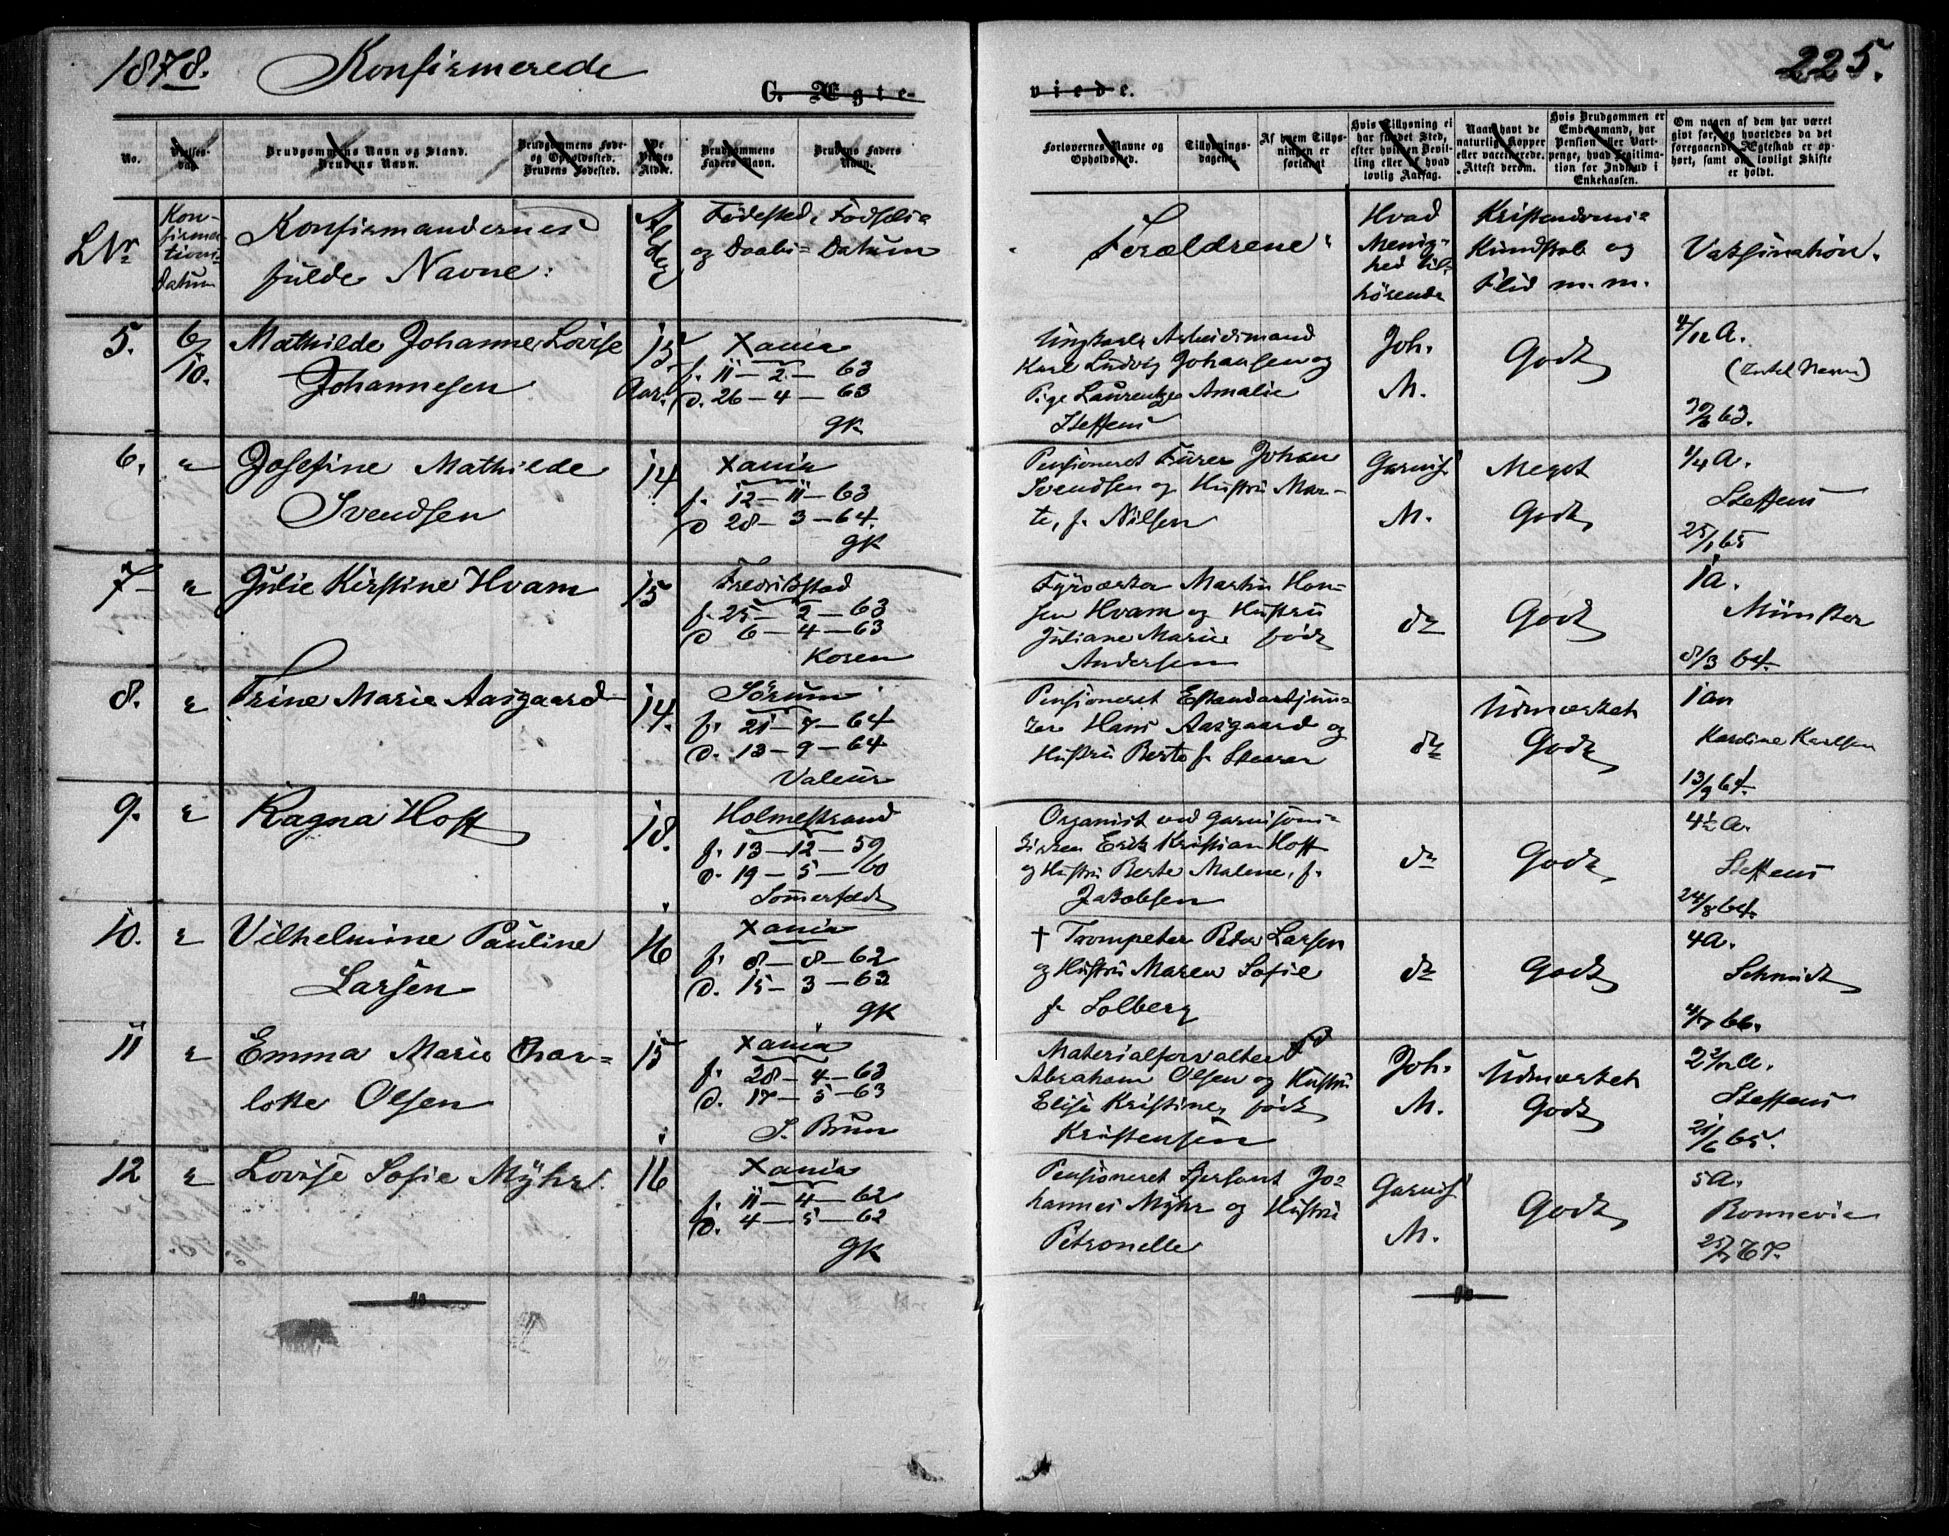 1878. Konfirmerede
225.
C. Ægte-
viede.
No.
Vielses-
Dag.
Brudgommens Navn og Stand.
Brudens Navn.
Brudgommens Føde-
og Opholdssted.
Brudens Fødested.
De
Viedes
Alder.
Brudgommens
Faders Navn.
Brudens Faders
Navn.
Forlovernes Navne og
Opholdssted.
Tillysnings-
dagene.
Af hvem Tillys-
ningen er
forlangt
Hvis Tillysning ei
har fundet Sted,
efter hvilken Bevil-
ling eller af hvad
lovlig Aarsag.
Naar havt de
naturlige Kopper
eller vaccinerede.
Attest derom.
Hvis Brudgommen er
Embedsmand, har
Pension eller Vart-
penge, hvad Legitima-
tion for Indskud i
Enkekassen.
Om nogen af dem har været
gift før, og hvorledes da det
foregaaende Ægteskab er op-
hørt, samt om lovligt Skifte
er holdt.
LNr
Kon-
firma-
tions-
Datum
Konfirmandernes
fulde Navne.
Alder
Fødested, Fødsels-
og Daabs-Datum
Forældrene
Hvad
Menig-
hed til-
hørende
Kristendoms-
Kundskab og
Flid m.m.
Vaksination.
5.
6/10.
Mathilde Johanne Lovise
Johannesen
15
Aar.
Xania
f. 11-2-63
D. 26-4-63
GK
Ungkarl Arbeidsmand
Karl Ludvig Johansen og
Pige Laurentze Amalie
Steffens
Joh.
M.
Godt
4/12 A.
(Intet Navn)
63.
6.
"
Josefine Mathilde
Svendsen
14
Xania
f. 12-11-63
D 28-3-64.
GK
Pensioneret Furer Johan
Svendsen og Hustru Mar-
te, f. Nilsen
Garnis.
M.
Meget
Godt
1/4 A.
Steffens
25/1 65
7
"
Julie Kirstine Hvam
15
Fredrikstad
f. 25-2-63
D 6-4-63
Koren
Fyrværker Martin Han-
sen Hvam og Hustru
Juliane Marie født
Andersen
do
Godt
1 A.
Münster
8/3 64.
8.
"
Trine Marie Aasgaard
14.
Sørum
f. 21-7-64
D. 13-9-64
Valeur
Pensioneret Estandardjun-
ker Hans Aasgaard og
Hustru Berte f.
do
Udmærket
Godt
1 an
Karoline Karlsen
13/9 64.
9.
"
Ragna Hoff
18.
Holmestrand
f. 13-12-59
D. 19-5-/60
Sommerfeldt
Organist ved Garnisons-
kirken Erik Kristian Hoff
og Hustru Berte Malene, f.
Jakobsen
do
Godt
4½ A.
Steffens
24/8 64.
10.
"
Vilhelmine Pauline
Larsen
16
Xania
f. 8-8-62
D. 15-3-63
GK
† Trompeter Peder Larsen
og Hustru Maren Sofie
f. Solberg
do
Godt
4 A.
Schmidt
66.
11
"
Emma Marie Char-
lotte Olsen
15
Xania
f. 28-4-63
D. 17-5-63
J. Brun
Materialforvalter
Abraham Olsen og Hustru
Elise Kristine, født
Kristensen
Joh.
M.
Udmærket
Godt
2 2/12 A.
Steffens
21/6 65.
12
"
Lovise Sofie Myhr.
16
Xania
f. 11-4-62
D. 4-5-62
GK
Pensioneret Sersant Jo-
hannes Myhr og Hustru
Petronelle
Garnis.
M.
Godt
5 A.
Bonnevie